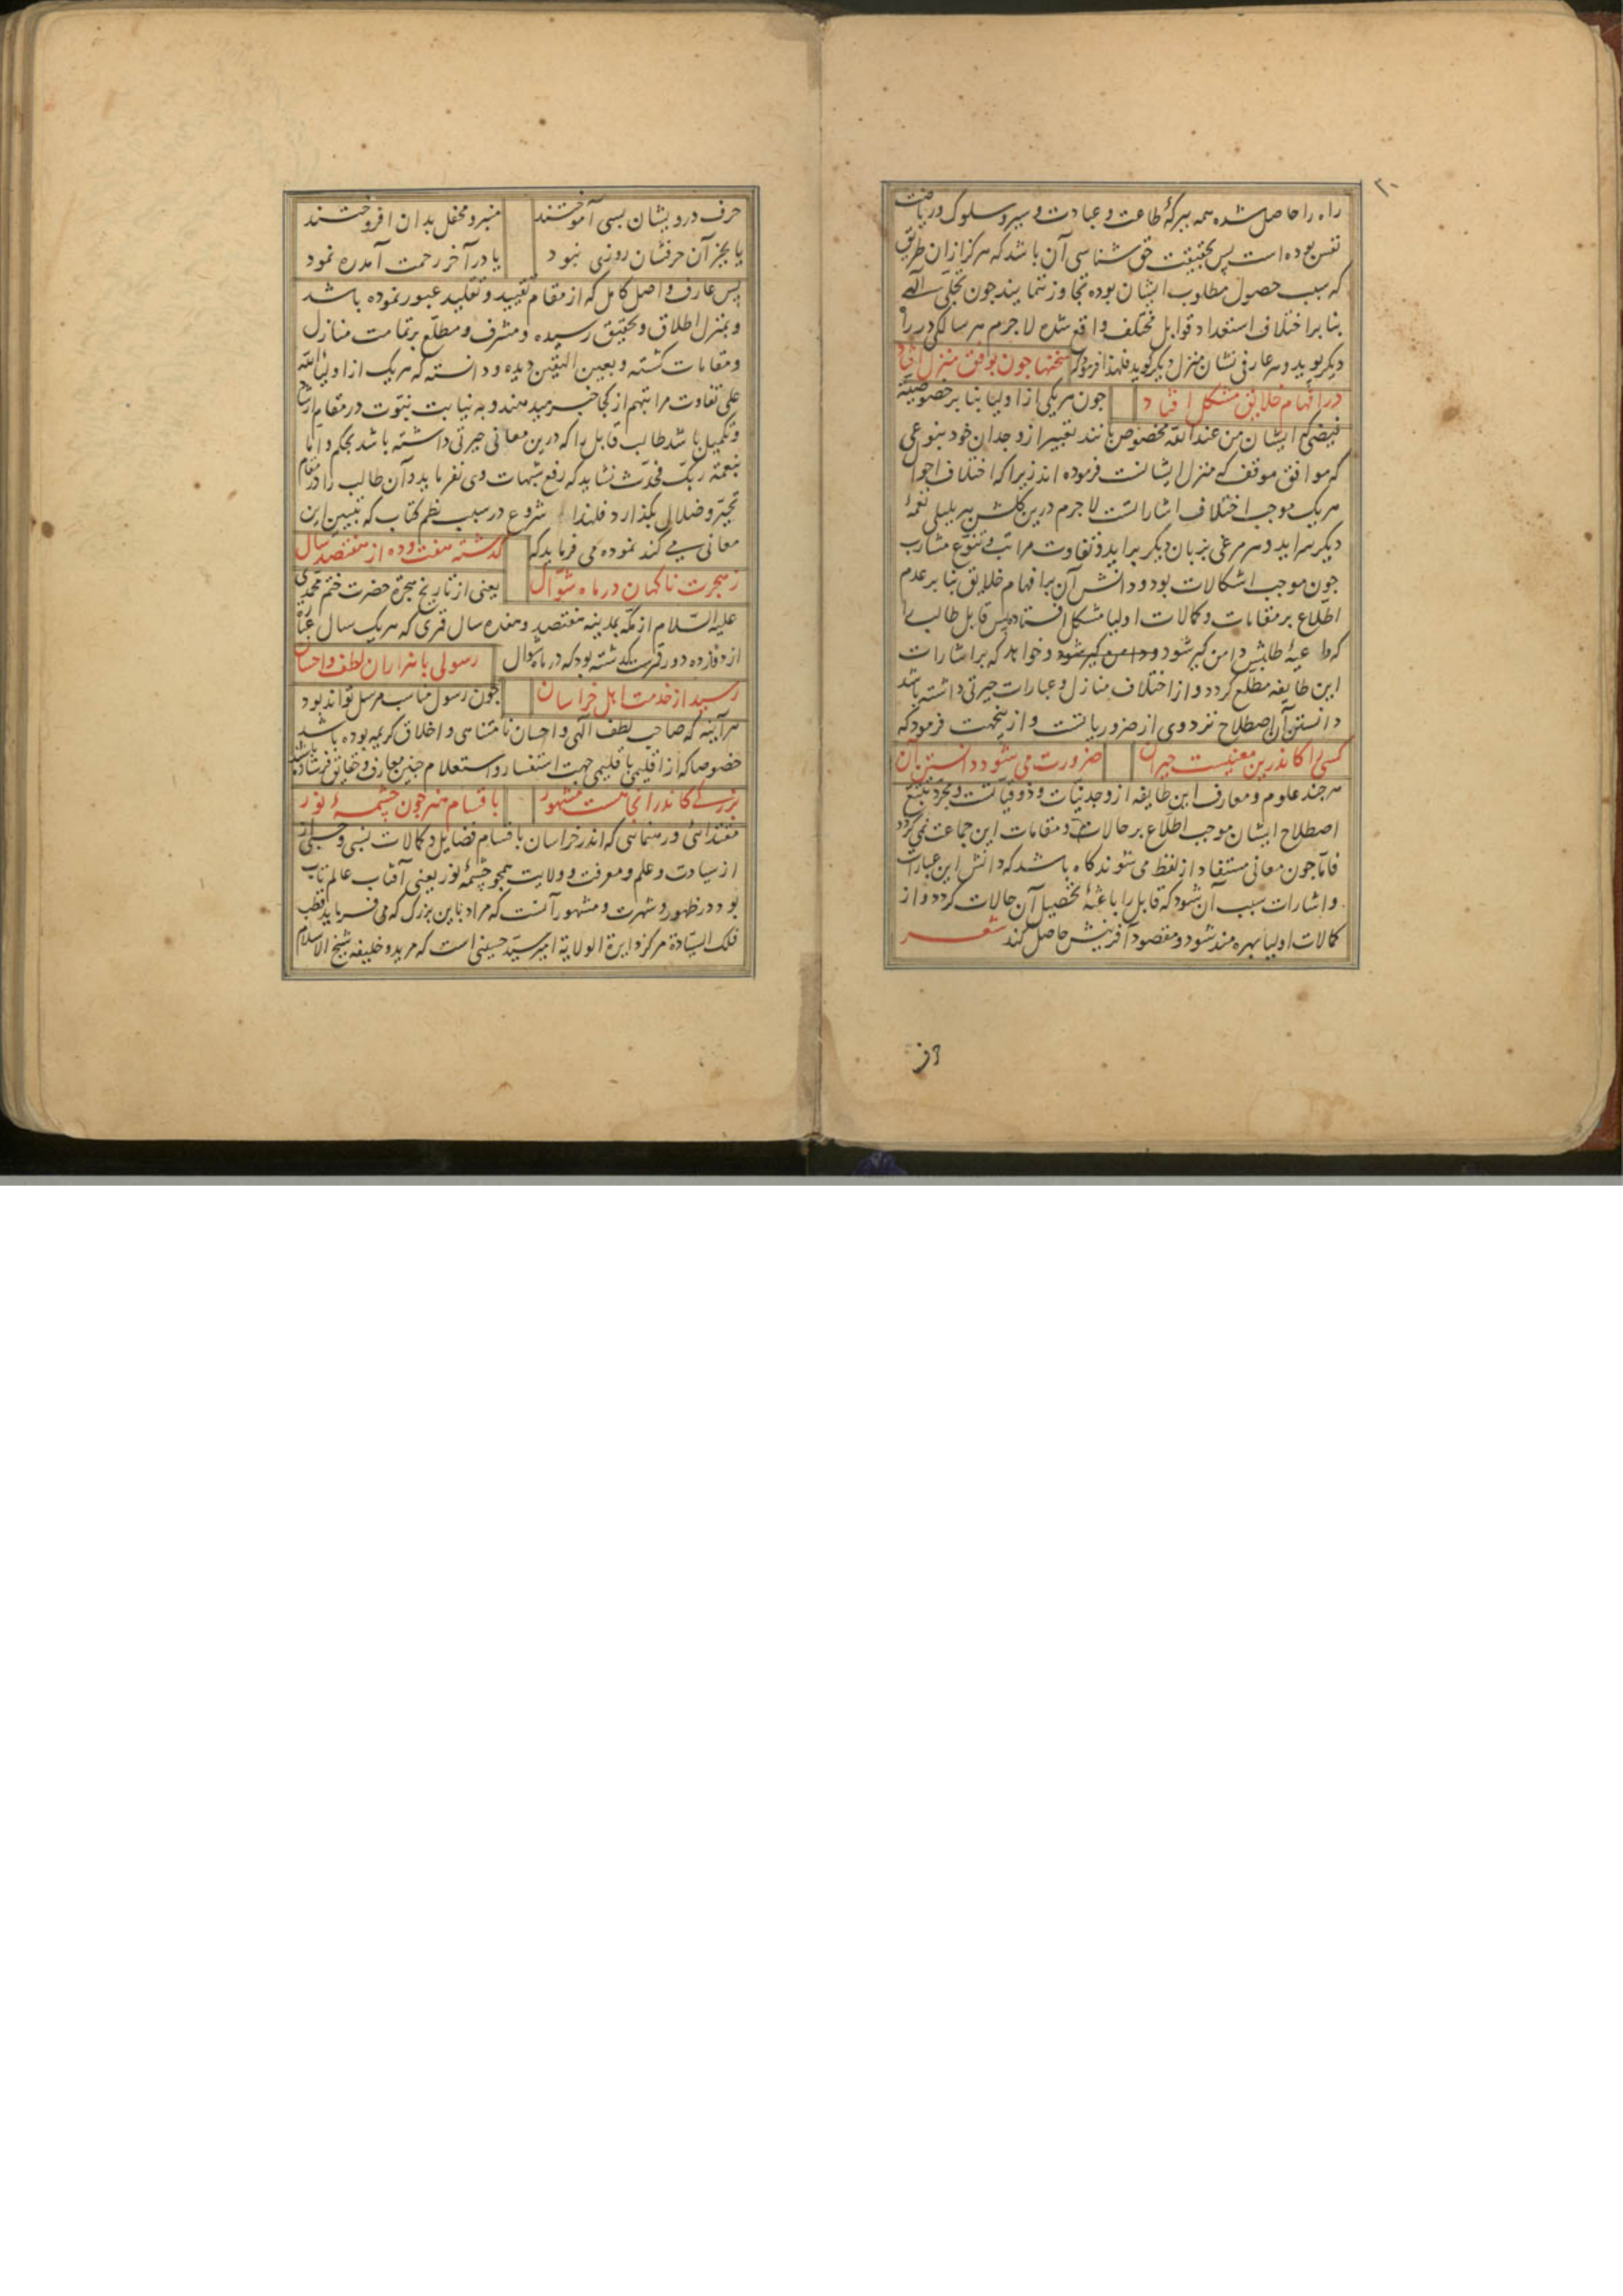 ۳۰
راه را حاصل شده همه ببرکهٔ طاعت و عبادت و سیر و سلوک و ریاضت
نفس بوده است پس بحقیقت حق شناسی آن باشد که هرکز ازان طریق
که سبب حصول مطلوب ایشان بوده تجاوز ننمایند چون تجلی الهی
بنا بر اختلاف استعداد قوابل مختلف واقع شده لا جرم هر سالکی در راه
دیکر پوید و هر عارفی نشان منزل دیکر کوید فلهذا فرمود که سخنها چون بوفق منزل افتاد
در افهام خلایق مشکل افتاد چون هر یکی از اولیا بنا بر خصوصیت
فیضی که ایشان من عند الله مخصوص بانند تعبیر از وجدان خود بنوعی
که موافق موقف که منزل ایشانست فرموده اند زیرا که اختلاف احوال
هر یک موجب اختلاف اشاراتست لا جرم درین کلشن هر بلبلی نغمهٔ
دیکر سراید و هر مرغی بزبان دیکر براید و تفاوت مراتب و تنوع مشارب
چون موجب اشکالات بود و دانش آن بر افهام خلایق بنا بر عدم
اطلاع بر مقامات و کمالات اولیا مشکل افتاده پس قابل طالب را
که داعیهٔ طلبش دامن کیر شود و دامن کیر شود و خواهد که بر اشارات
این طایفه مطلع کردد و از اختلاف منازل و عبارات حیرتی داشته باشد
دانستن آن اصطلاح نزد وی از ضروریاتست و ازینجهت فرمود که
کسی را کاندرین معنیست حیران ضرورت می شود دانستن آن
هر چند علوم و معارف این طایفه از وجدنیات و ذوقیاتست و بمجرد تتبع
اصطلاح ایشان موجب اطلاع بر حالات و مقامات این جماعت نمی کردد
فاما چون معانی مستفاد از لفظ می شوند کاه باشد که دانش این عبارات
و اشارات سبب آن شود که قابل را باعثهٔ تحصیل آن حالات کردد و از
کمالات اولیا بهره مند شود و مقصود آفرینش حاصل کند شعر
حرف درویشان بسی آموختند منبر و محفل بدان افروختند
یا بجز آن حرفشان روزی نبود یا در آخر رحمت آمد ره نمود
پس عارف واصل کامل که از مقام تقیید و تقلید عبور نموده باشد
و بمنزل اطلاق و تحقیق رسیده و مشرف و مطلع بر تمامت منازل
و مقامات کشته و بعین الیقین دیده و دانسته که هر یک از اولیاء الله
علی تفاوت مراتبهم از کجا خبر میدهند و به نیابت نبوت در مقام ارشاد
و تکمیل باشد طالب قابل را که درین معانی حیرتی داشته باشد بحکم و اما
بنعمة ربک فحدث نشاید که رفع شبهات وی نفرماید و آن طالب را در مقام
تحیر و ضلال بکذارد فلهذا شروع در سبب نظم کتاب که تبیین این
معانی می کند نموده می فرماید که کذشته هفت و ده از هفتصد سال
ز هجرت ناکهان در ماه شوال یعنی از تاریخ هجرة حضرت ختم محمدی
علیه السلام از مکه بمدینه هفتصد و هفده سال قمری که هر یک سال عبارة
از دوازده دور قمرست کذشته بود که در ماه شوال رسولی با هزاران لطف و احسان
رسید از خدمت اهل خراسان چون رسول مناسب مرسل تواند بود
هر آینه که صاحب لطف الهی و احسان نامتناهی و اخلاق کریمه بوده باشد
خصوصا که از اقلیمی باقلیمی جهت استفسار و استعلام چنین معارف و حقایق فرستاده باشند
بزرکی کاندر آنجا هست مشهور باقسام هنر چون چشمهٔ نور
مقتدائی و رهنمائی که اندر خراسان باقسام فضایل و کمالات نسبی و حسبی از
از سیادت و علم و معرفت و ولایت همچو چشمهٔ نور یعنی آفتاب عالم تاب
بود در ظهور و شهرت و مشهور آنست که مراد باین بزرک که می فرماید قطب
فلک السیادة مرکز دایرة الولایة امیر سید حسینی است که مرید و خلیفه شیخ الاسلام